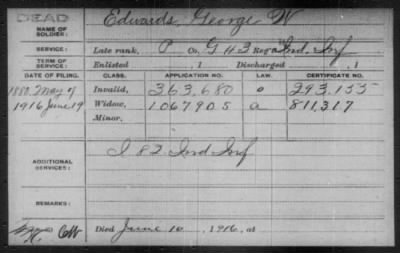 DEAD
NAME OF SOLDIER: Edwards, George W
SERVICE: Late rank, P Co. G 43 Reg't Ind. Inf
TERM OF SERVICE: Enlisted , 1 Discharged , 1
DATE OF FILING. CLASS. APPLICATION NO. LAW. CERTIFICATE NO.
1880. May 9 Invalid, 363,680 293.155
1916 June 19 Widow, 1067905 a 811,317
Minor,
ADDITIONAL SERVICES: I 82 Ind Inf
REMARKS:
Died June 10 , 1916, at